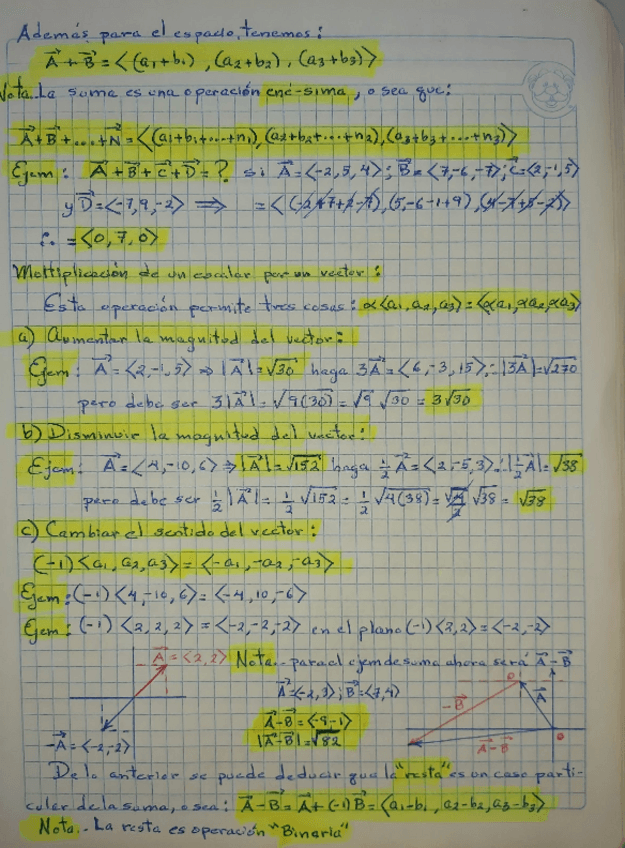 Además para el espacio, tenemos:
A⃗ + B⃗ = <(a₁+b₁), (a₂+b₂), (a₃+b₃)>
Nota.. La suma es una operación ené-sima, o sea que:
A⃗+B⃗+...+N⃗ = <(a₁+b₁+...+n₁), (a₂+b₂+...+n₂), (a₃+b₃+...+n₃)>
Ejem: A⃗+B⃗+C⃗+D⃗ = ? si A⃗=<-2,5,4>; B⃗=<7,-6,-7>; C⃗=<2,-1,5>
y D⃗=<-7,9,-2> ⟹ =<(-2+7+2-7),(5-6-1+9),(4-7+5-2)>
∴ = <0,7,0>
Moltiplicación de un escalar por un vector:
Esta operación permite tres cosas: α<a₁,a₂,a₃>=<αa₁,αa₂,αa₃>
a) Aumentar la magnitud del vector:
Ejem: A⃗=<2,-1,5> ⇒ |A⃗|=√30 haga 3A⃗=<6,-3,15> ∴ |3A⃗|=√270
pero debe ser 3|A⃗|=√9(30)=√9 √30 = 3√30
b) Disminuir la magnitud del vector:
Ejem: A⃗=<4,-10,6> ⇒ |A⃗|=√152 haga ½A⃗=<2,-5,3> ∴ |½A⃗|=√38
pero debe ser ½|A⃗|=½√152=½√4(38)=√4/2 √38=√38
c) Cambiar el sentido del vector:
(-1)<a₁,a₂,a₃>=<-a₁,-a₂,-a₃>
Ejem: (-1)<4,-10,6>=<-4,10,-6>
Ejem: (-1)<2,2,2>=<-2,-2,-2> en el plano (-1)<2,2>=<-2,-2>
A⃗=<2,2>
Nota.. para el ejem de suma ahora será A⃗-B⃗
A⃗=<-2,3>; B⃗=<7,4>
A⃗-B⃗=<-9,-1>
|A⃗-B⃗|=√82
-A⃗=<-2,-2>
-B⃗
A⃗
A⃗-B⃗
De lo anterior se puede deducir que la "resta" es un caso parti-
cular de la suma, o sea: A⃗-B⃗=A⃗+(-1)B⃗=<a₁-b₁, a₂-b₂, a₃-b₃>
Nota.. La resta es operación "Binaria"